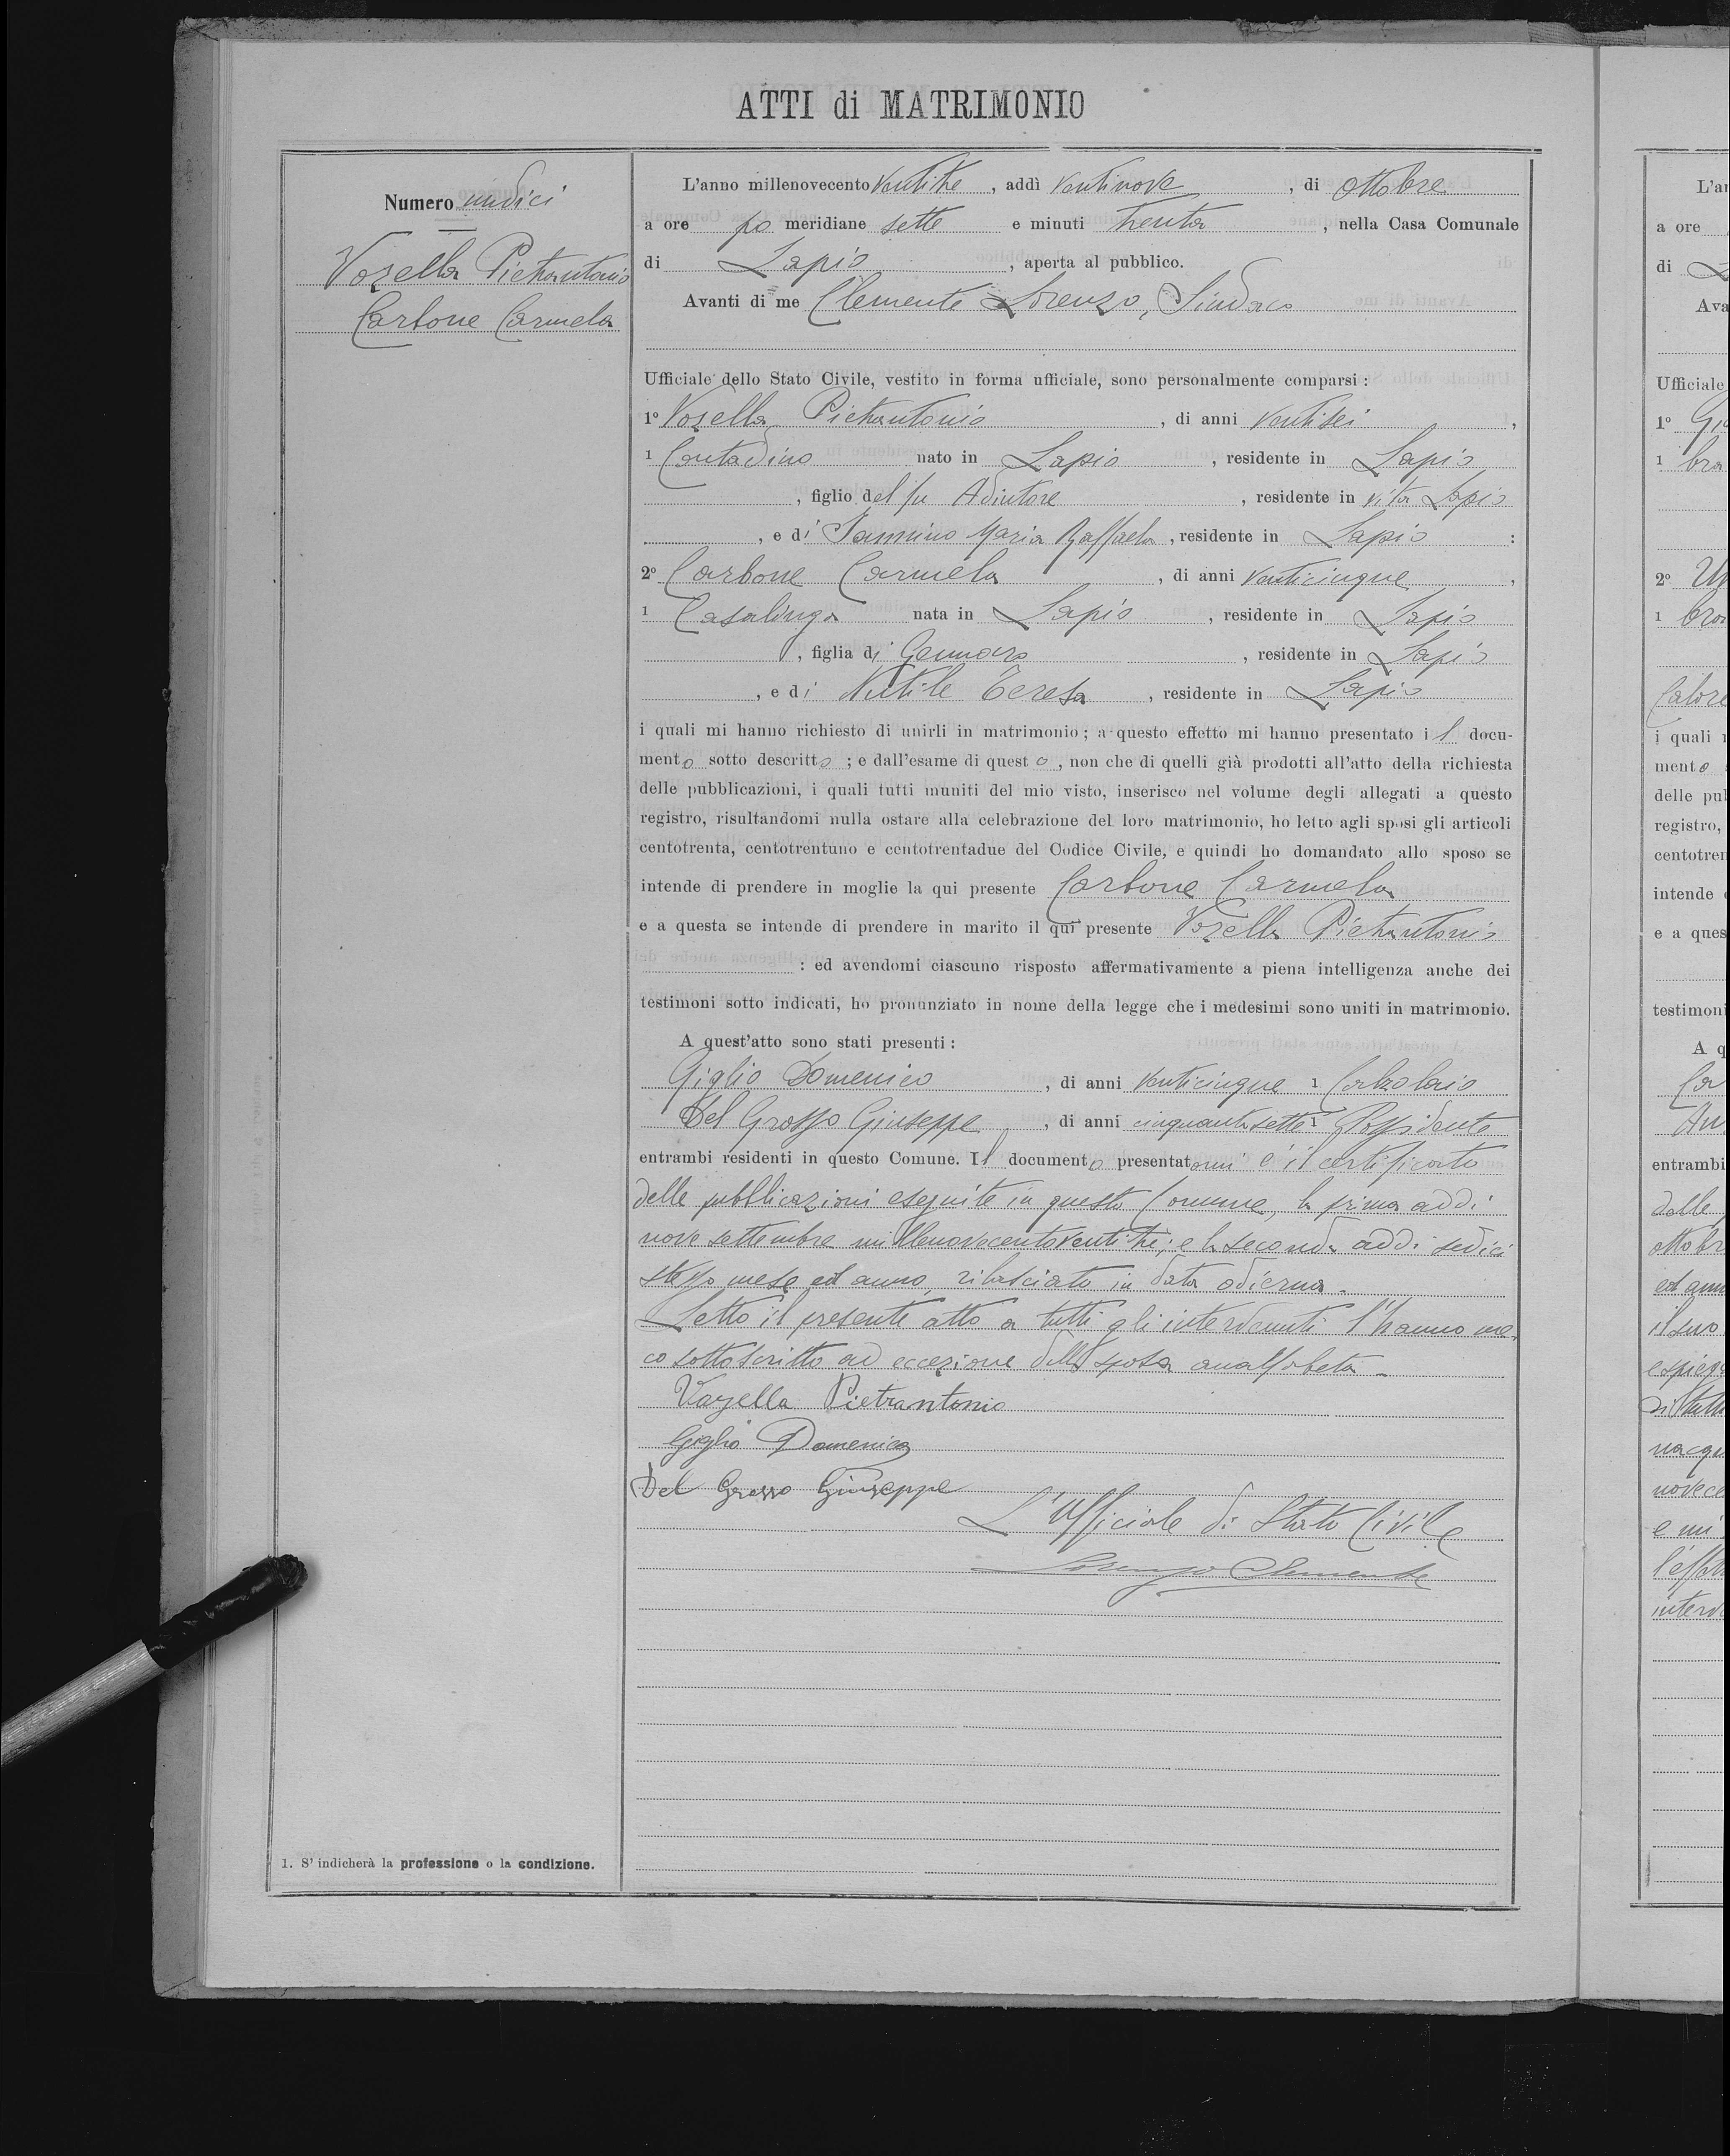 ATTI di MATRIMONIO
Numero undici
Vozella Pietrantonio
Carbone Carmela
L'anno millenovecento ventitre, addì ventinove, di ottobre
a ore po meridiane sette e minuti trenta, nella Casa Comunale
di Lapio, aperta al pubblico.
Avanti di me Clemente Lorenzo, Sindaco
Ufficiale dello Stato Civile, vestito in forma ufficiale, sono personalmente comparsi:
1º Vozella Pietrantonio, di anni ventisei,
1 Contadino nato in Lapio, residente in Lapio
, figlio del fu Adiutore, residente in vita Lapio
, e di Iannino Maria Raffaela, residente in Lapio:
2º Carbone Carmela, di anni venticinque,
1 Casalinga nata in Lapio, residente in Lapio
, figlia di Gennaro, residente in Lapio
, e di Nutile Teresa, residente in Lapio
i quali mi hanno richiesto di unirli in matrimonio; a questo effetto mi hanno presentato il docu-
mento sotto descritto; e dall'esame di questo, non che di quelli già prodotti all'atto della richiesta
delle pubblicazioni, i quali tutti muniti del mio visto, inserisco nel volume degli allegati a questo
registro, risultandomi nulla ostare alla celebrazione del loro matrimonio, ho letto agli sposi gli articoli
centotrenta, centotrentuno e centotrentadue del Codice Civile, e quindi ho domandato allo sposo se
intende di prendere in moglie la qui presente Carbone Carmela
e a questa se intende di prendere in marito il qui presente Vozella Pietrantonio
: ed avendomi ciascuno risposto affermativamente a piena intelligenza anche dei
testimoni sotto indicati, ho pronunziato in nome della legge che i medesimi sono uniti in matrimonio.
A quest'atto sono stati presenti:
Giglio Domenico, di anni venticinque 1 Calzolaio
Del Grosso Giuseppe, di anni cinquantasette 1 Possidente
entrambi residenti in questo Comune. Il documento presentatomi è il certificato
delle pubblicazioni eseguite in questo Comune, la prima addì
nove settembre millenovecentoventitre; e la seconda addì sedici
stesso mese ed anno, rilasciato in data odierna.
Letto il presente atto a tutti gli intervenuti l'hanno me-
co sottoscritto ad eccezione della sposa analfabeta.
Vozella Pietrantonio
Giglio Domenico
Del Grosso Giuseppe
L'Ufficiale di Stato Civile
Lorenzo Clemente
1. S' indicherà la professione o la condizione.
L'an
a ore
di
Ava
Ufficiale
1º
1
2º
1
i quali
mento
delle pub
registro,
centotren
intende
e a ques
testimoni
A q
entrambi
delle
ottobr
ed ann
il suo
e spieg
nacqu
novece
e mi